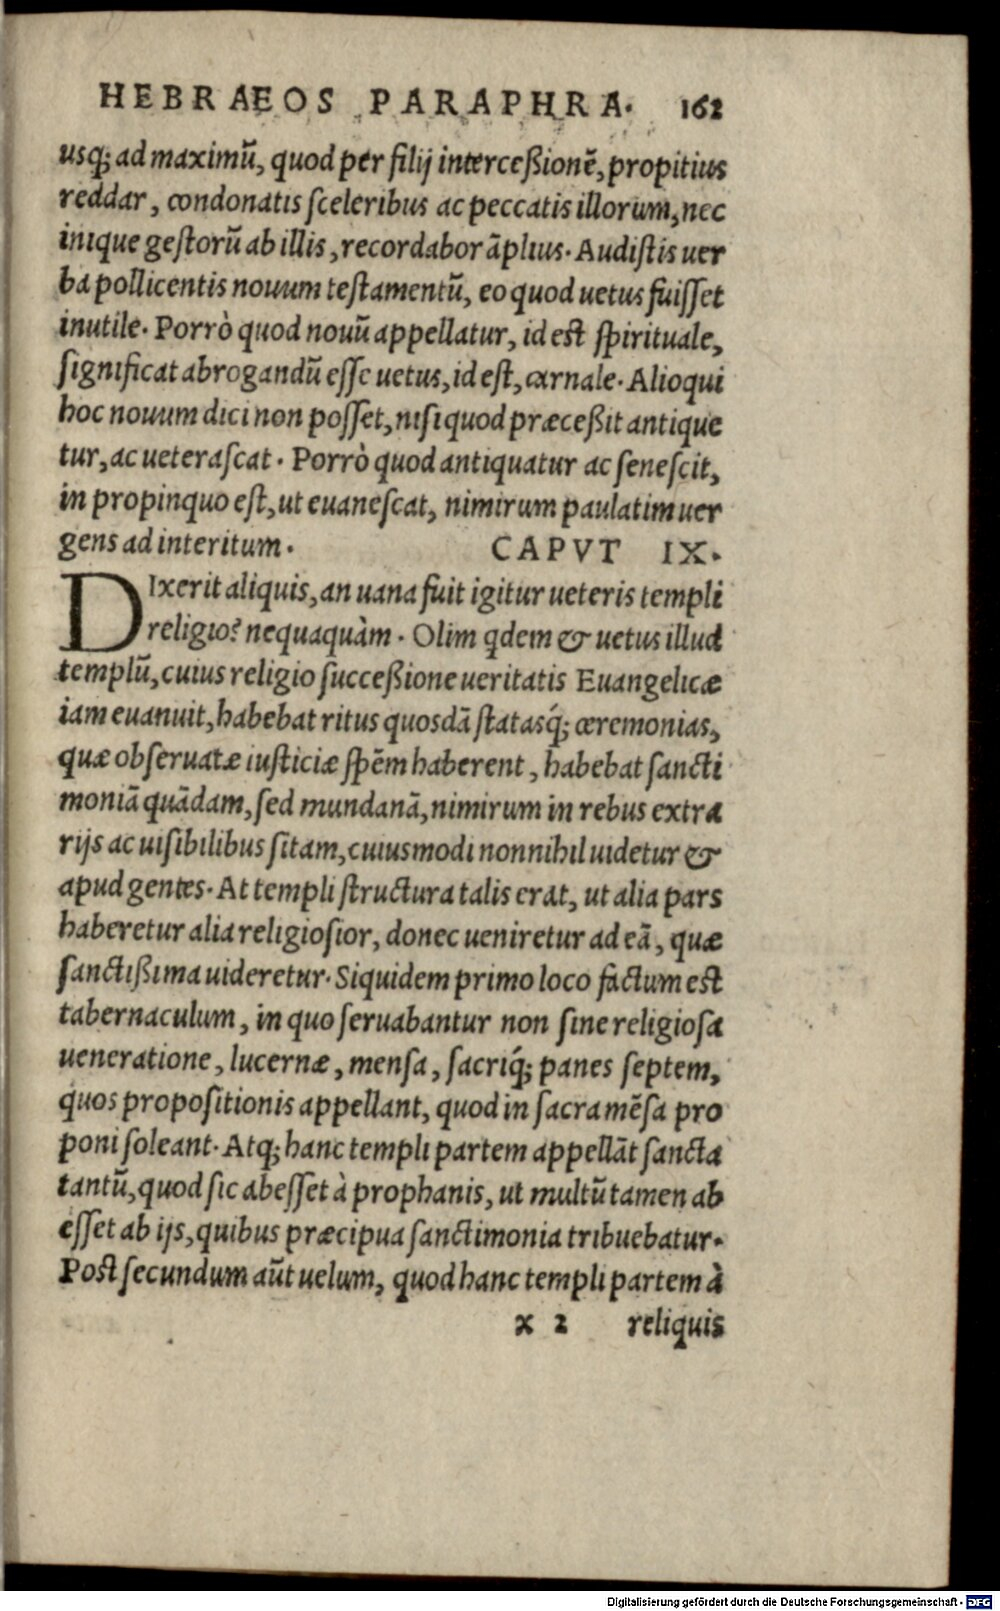 HEBRAEOS PARAPHRA. 162
usq; ad maximū, quod per filij interceßionē, propitius
reddar, condonatis sceleribus ac peccatis illorum, nec
inique gestorū ab illis, recordabor āplius. Audistis uer
ba pollicentis nouum testamentū, eo quod uetus fuisset
inutile. Porrò quod nouū appellatur, id est spirituale,
significat abrogandū esse uetus, id est, carnale. Alioqui
hoc nouum dici non posset, nisi quod præceßit antique
tur, ac ueterascat. Porrò quod antiquatur ac senescit,
in propinquo est, ut euanescat, nimirum paulatim uer
gens ad interitum. CAPVT IX.
DIxerit aliquis, an uana fuit igitur ueteris templi
religio? nequaquàm. Olim qdem & uetus illud
templū, cuius religio succeßione ueritatis Euangelicæ
iam euanuit, habebat ritus quosdā statasq́; ceremonias,
quæ obseruatæ iusticiæ spēm haberent, habebat sancti
moniā quādam, sed mundanā, nimirum in rebus extra
rijs ac uisibilibus sitam, cuiusmodi nonnihil uidetur &
apud gentes. At templi structura talis erat, ut alia pars
haberetur alia religiosior, donec ueniretur ad eā, quæ
sanctißima uideretur. Siquidem primo loco factum est
tabernaculum, in quo seruabantur non sine religiosa
ueneratione, lucernæ, mensa, sacriq́; panes septem,
quos propositionis appellant, quod in sacra mēsa pro
poni soleant. Atq; hanc templi partem appellāt sancta
tantū, quod sic abesset à prophanis, ut multū tamen ab
esset ab ijs, quibus præcipua sanctimonia tribuebatur.
Post secundum aūt uelum, quod hanc templi partem à
x 2 reliquis
Digitalisierung gefördert durch die Deutsche Forschungsgemeinschaft - DFG